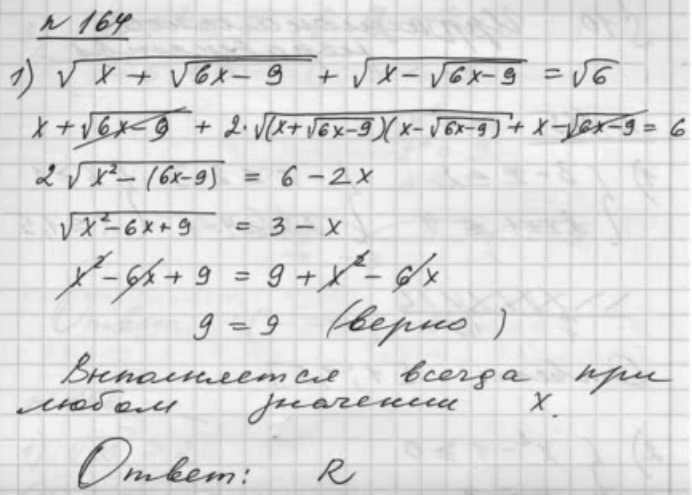 № 164
1) √(x + √(6x - 9)) + √(x - √(6x - 9)) = √6
x + √(6x - 9) + 2·√((x + √(6x - 9))(x - √(6x - 9))) + x - √(6x - 9) = 6
2√(x² - (6x - 9)) = 6 - 2x
√(x² - 6x + 9) = 3 - x
x² - 6x + 9 = 9 + x² - 6x
9 = 9 (верно)
Выполняется всегда при
любом значении x.
Ответ: R